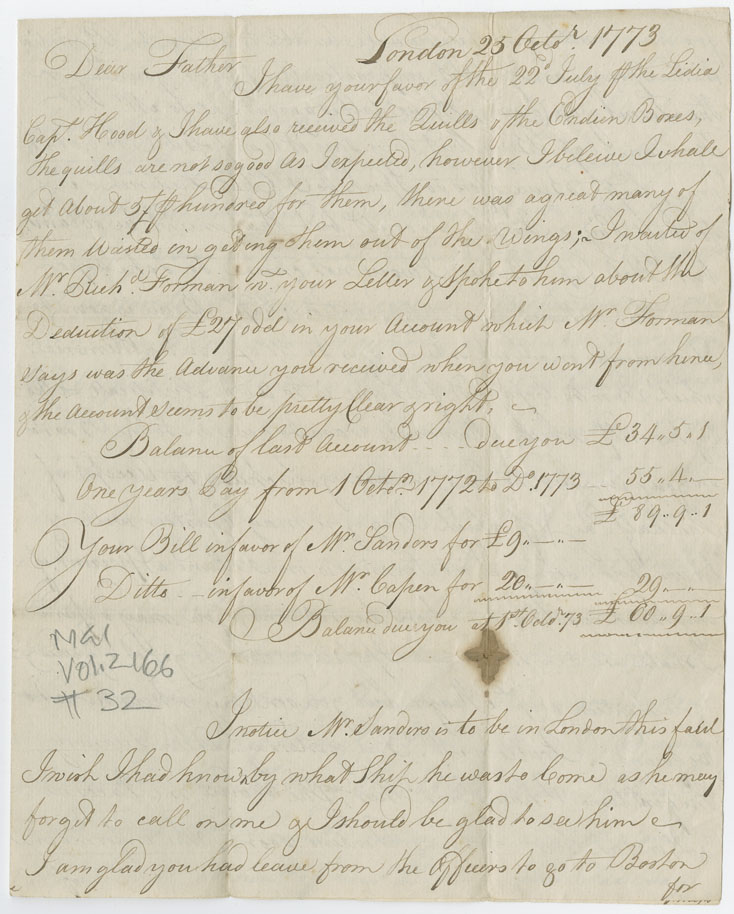 London 25 Octor. 1773
Dear Father
I have your favor of the 22d July ⅌ the Lidia
Capt. Hood & I have also received the Quills & the Boxes,
the quills are not so good as I expected, however I beleive I shall
get about 5/ ⅌ hundred for them, there was a great many of
them Wasted in geting them out of the Wings;
Mr. Richd. Forman your Letter & Spoke to him about the
Deduction of £27 odd in your Account which Mr. Forman
says was the Advance you received when you went from hence,
& the Account seems to be pretty Clear & right.
Balance of last Account .... due you £ 34,, 5,, 1
One years Pay from 1 Octor. 1772 to Do. 1773 55,, 4,, —
£ 89,, 9,, 1
Your Bill in favor of Mr. Sanders for £9,, —,, —
Ditto - in favor of Mr. Capen for 20,, —,, — 29,, —,, —
Balance due you at 1st. Octor. 73 £ 60,, 9,, 1
MG1
Vol. 2166
# 32
I notice Mr. Sanders is to be in London this fall
I wish I had know by what Ship he was to Come as he may
forgit to call on me & I should be glad to see him
I am glad you had leave from the Officers to go to Boston
for